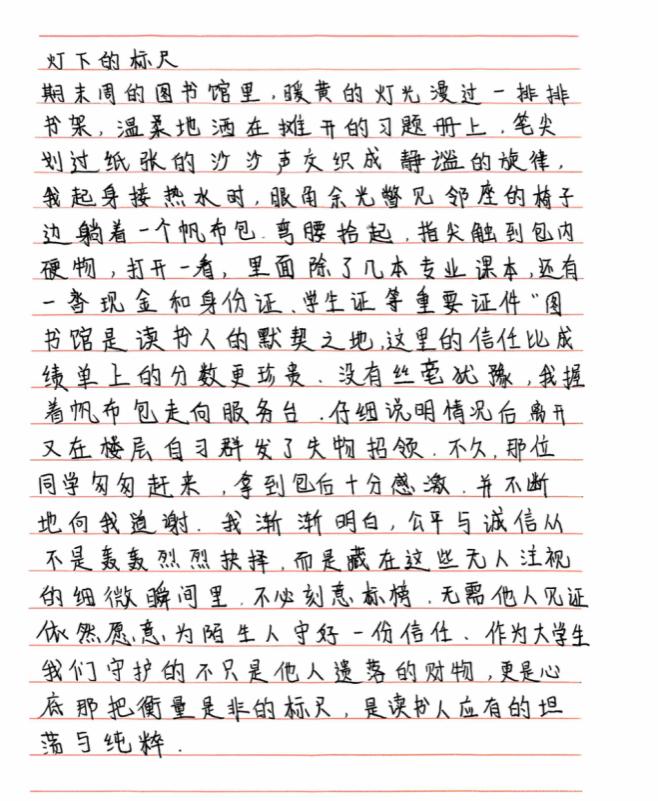 灯下的标尺
期末周的图书馆里,暖黄的灯光漫过一排排
书架,温柔地洒在摊开的习题册上,笔尖
划过纸张的沙沙声交织成静谧的旋律,
我起身接热水时,眼角余光瞥见邻座的椅子
边躺着一个帆布包.弯腰拾起,指尖触到包内
硬物,打开一看,里面除了几本专业课本,还有
一沓现金和身份证、学生证等重要证件“图
书馆是读书人的默契之地,这里的信任比成
绩单上的分数更珍贵.没有丝毫犹豫,我握
着帆布包走向服务台.仔细说明情况后离开
又在楼层自习群发了失物招领.不久,那位
同学匆匆赶来,拿到包后十分感激.并不断
地向我道谢.我渐渐明白,公平与诚信从
不是轰轰烈烈抉择,而是藏在这些无人注视
的细微瞬间里.不必刻意标榜.无需他人见证
依然愿意为陌生人守好一份信任.作为大学生
我们守护的不只是他人遗落的财物,更是心
底那把衡量是非的标尺,是读书人应有的坦
荡与纯粹.